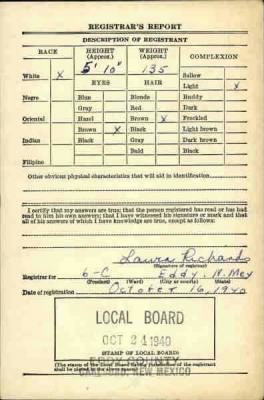 REGISTRAR'S REPORT
DESCRIPTION OF REGISTRANT
RACE HEIGHT (Approx.) WEIGHT (Approx.) COMPLEXION
5' 10" 135
White X Sallow
EYES HAIR Light X
Negro Blue Blonde Ruddy
Gray Red Dark
Oriental Hazel Brown X Freckled
Brown X Black Light brown
Indian Black Gray Dark brown
Bald Black
Filipino
Other obvious physical characteristics that will aid in identification
I certify that my answers are true; that the person registered has read or has had
read to him his own answers; that I have witnessed his signature or mark and that
all of his answers of which I have knowledge are true, except as follows:
Laura Richards
(Signature of registrar)
Registrar for 6-C Eddy, N. Mex
(Precinct) (Ward) (City or county) (State)
Date of registration October 16, 1940
LOCAL BOARD
OCT 24 1940
(STAMP OF LOCAL BOARD)
EDDY COUNTY
NEW MEXICO
(The stamp of the Local Board of the registrant
shall be placed in the above space)